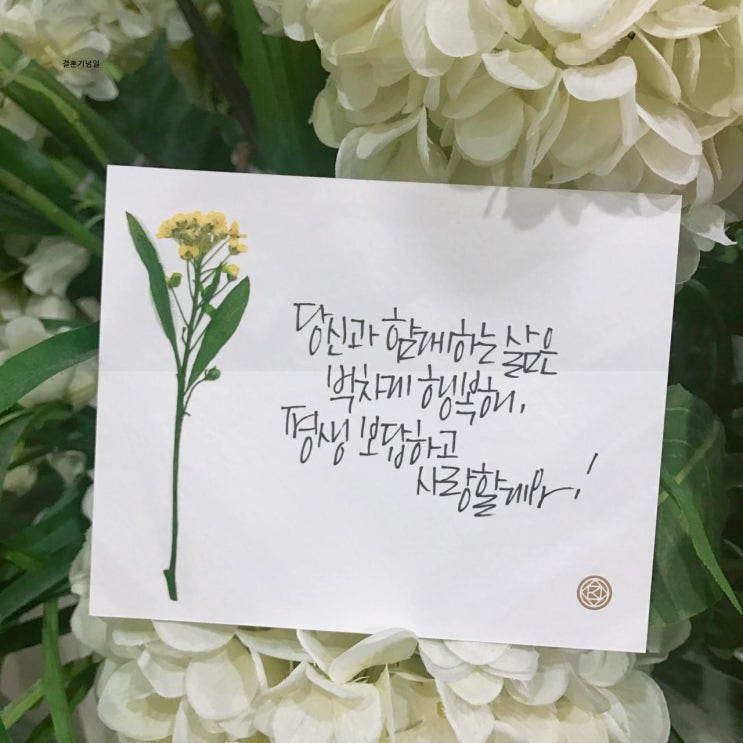 결혼기념일
당신과 함께하는 삶은
벅차게 행복해,
평생 보답하고
사랑할게요!